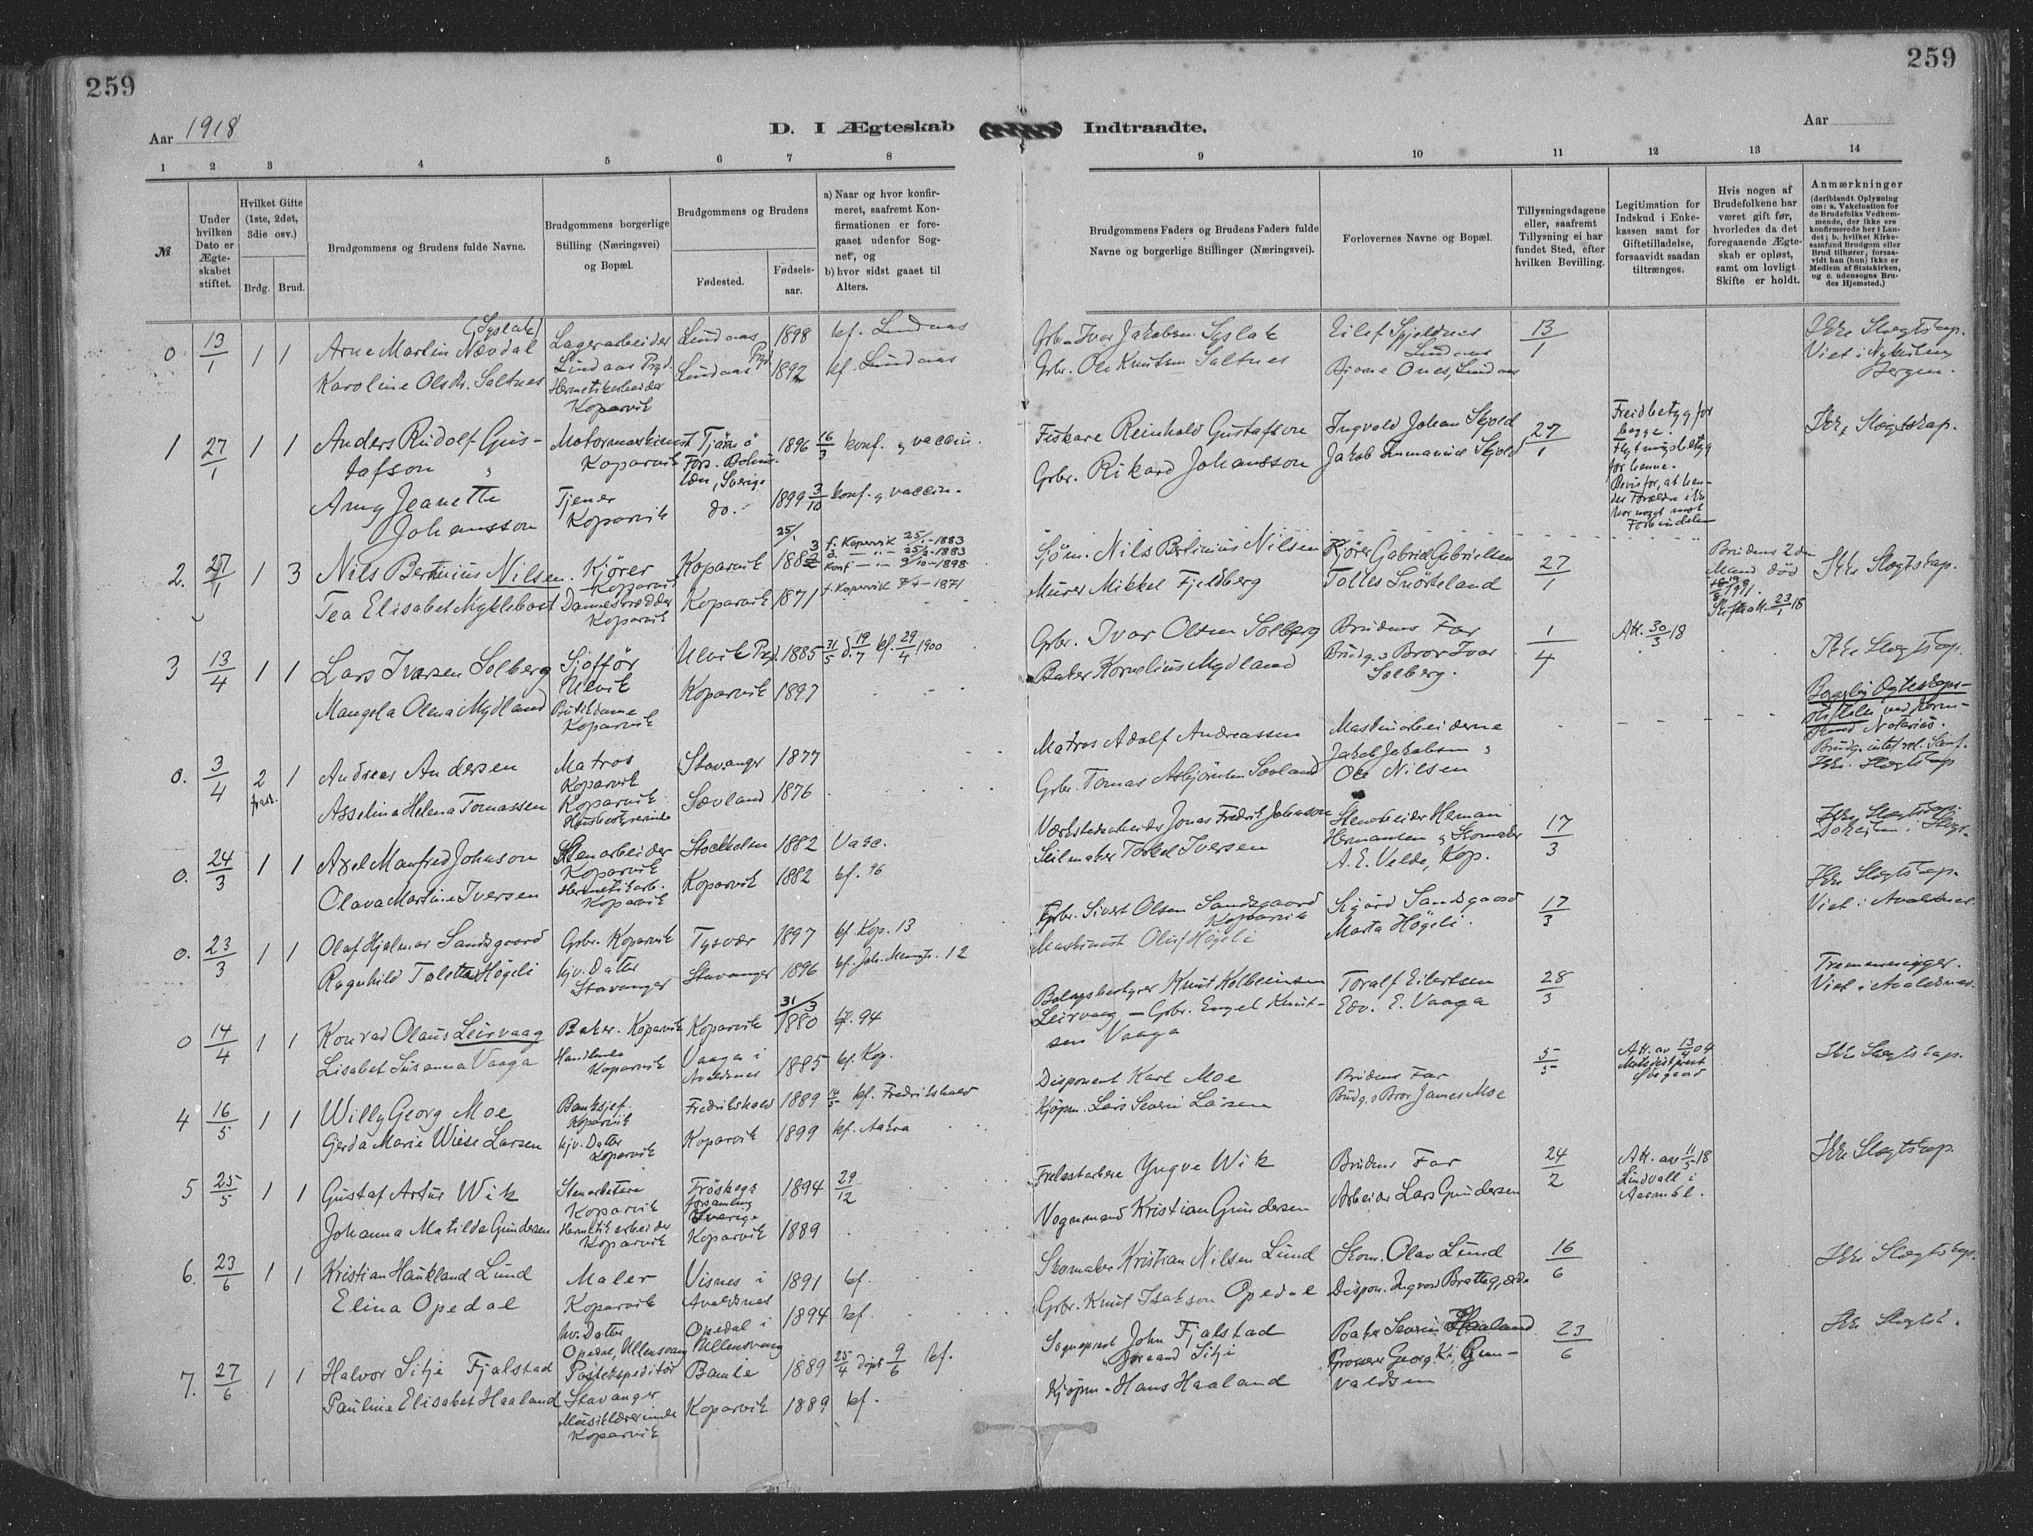 259
259
Aar 1918
D. I Ægteskab Indtraadte.
Aar
1 2 3 4 5 6 7 8 9 10 11 12 13 14
№
Under hvilken Dato er Ægteskabet stiftet.
Hvilket Gifte (1ste, 2det, 3die osv.)
Brdg. Brud.
Brudgommens og Brudens fulde Navne.
Brudgommens borgerlige Stilling (Næringsvei) og Bopæl.
Brudgommens og Brudens
Fødested.
Fødselsaar.
a) Naar og hvor konfirmeret, saafremt Konfirmationen er foregaaet udenfor Sognet, og
b) hvor sidst gaaet til Alters.
Brudgommens Faders og Brudens Faders fulde Navne og borgerlige Stillinger (Næringsvei).
Forlovernes Navne og Bopæl.
Tillysningsdagene eller, saafremt Tillysning ei har fundet Sted, efter hvilken Bevilling.
Legitimation for Indskud i Enkekassen samt for Giftetilladelse, forsaavidt saadan tiltrænges.
Hvis nogen af Brudefolkene har været gift før, hvorledes da det foregaaende Ægteskab er opløst, samt om lovligt Skifte er holdt.
Anmærkninger
(deriblandt Oplysning om: a. Vakcination for de Brudefolks Vedkommende, der ikke ere konfirmerede her i Landet; b. hvilket Kirkesamfund Brudgom eller Brud tilhører, forsaavidt han (hun) ikke er Medlem af Statskirken, og c. udensogns Brudes Hjemsted.)
0 13/1 1 1 Arne Martin Nævdal (Syslak) Lagerarbeider Lindaas Prgd. Lindaas 1898 kf. Lindaas Grbr. Ivar Jakobsen Syslak Eilef Spjeldnes Lindaas 13/1 Ikke Slægtskap.
Karoline Olsdr. Saltnes Hermetikarbeider Koparvik Lindaas Prgd 1892 kf. Lindaas Grbr. Ole Knutsen Saltnes Bjarne Ones, Lindaas Viet i Nykirken Bergen.
1 27/1 1 1 Anders Rudolf Gustafson Motormaskinist Koparvik Tjärnö Förs. Bohuslän, Sverige 1896 16/3 konf. og vaccin. Fiskare Reinhold Gustafson Ingvald Johan Skjold 27/1 Freidbetyg for begge. Flytningsbetyg for henne. Bevis for, at hendes Forældre ikke har noget mot Forbindelsen Ikke Slægtskap.
Amy Jeanette Johansson Tjener Koparvik do. 1899 3/10 konf. og vaccin. Grbr. Rikard Johansson Jakob Immanuel Skjold
2. 27/1 1 3 Nils Bertinius Nilsen. Kjører Koparvik Koparvik 25/1 1883 f. Kopervik 25/1-1883 d. — " — 25/3-1883 Konf — " — 9/10-1898 Sjøm. Nils Bertinius Nilsen Kjører Gabriel Gabrielsen 27/1 Brudens 2den Mand død Ikke Slægtskap.
Tea Elisabet Myklebost Koparvik Koparvik 1871 f. Kopervik 7/4-1871 Murer Mikkel Fjeldberg Tolles Snörteland Skifteatt. 23/1 18
3 13/4 1 1 Lars Ivarsen Solberg Sjofför Ulvik Ulvik Prgd. 1885 31/5 d. 19/7 kf. 29/4 1900 Grbr. Ivar Olsen Solberg Brudens Far 1/4 Att. 30/3 18 Ikke Slægtskap.
Mangela Olena Mydland Butikdame Koparvik Koparvik 1897 Baker Kornelius Mydland Brudg.s Bror Ivar Solberg.
0. 3/4 2 frask. 1 Andreas Andersen Matros Koparvik Stavanger 1877 Matros Adolf Andreassen Maskinarbeiderne Jakob Jakobsen og Borgerlig Ægteskapsstiftelse ved Notarius.
Asseline Helena Tomassen Koparvik Husbestyrerinde Sævland 1876 Grbr. Tomas Asbjørnsen Sævland Ole Nilsen Ikke Slægtskap
0. 24/3 1 1 Axel Manfred Johnson Stenarbeider Koparvik Stockholm 1882 Vacc. Værkstedsarbeider Jonas Fredrik Johanson Stenarbeider Herman Hermansen og Skomaker 17/3 Ikke Slægtskap.
Olava Martine Iversen Hermetikarb. Koparvik Koparvik 1882 kf. 96 Seilmaker Torkel Iversen A. E. Velde, Kop.
0. 23/3 1 1 Olaf Hjalmar Sandsgaard Grbr. Koparvik Tysvær 1897 kf. Kop. 13 Grbr. Sivert Olsen Sandsgaard Koparvik Sigurd Sandsgaard 17/3 Ikke Slægtskap.
Ragnhild Toletta Høgeli hjv. Datter Stavanger Stavanger 1896 kf. Joh. Mengh. 12 Maskinist Oluf Høgeli Marta Høgeli. Viet i Avaldsnes
0 14/4 1 1 Konrad Olaus Leirvaag Baker. Koparvik Koparvik 31/3 1880 kf. 94 Bolagsbestyrer Knut Kolbeinsen Leirvaag Toralf Eilertsen 28/3 Tremenninger.
Lisabet Susanna Vaaga Koparvik Vaaga i Avaldsnes 1885 kf. Kop. Grbr. Engel Knutsen Vaaga Edv. E. Vaaga Viet i Avaldsnes
4 16/5 1 1 Willy Georg Moe Banksjef Koparvik Fredrikshald 1889 14/5 kf. Fredrikshald Disponent Karl Moe Brudens Far 5/5 Att. av 13/4 04 Ikke Slægtskap.
Gerda Marie Wiese Larsen hjv. Datter Koparvik Koparvik 1899 kf. Aakra Kjøpm. Lars Severin Larsen Brudg.s Bror James Moe
5 25/5 1 1 Gustaf Artur Wik Stenarbetare Koparvik Tröskogs församling Sverige 1894 29/12 Yngve Wik Brudens Far 24/2 Att. av 11/5 18 Lindvall i Ikke Slægtskap.
Johanna Matilda Gundersen Hermetikarbeider Koparvik Koparvik 1889 Vognmand Kristian Gundersen Arbeider Lars Gundersen
6. 23/6 1 1 Kristian Haukland Lund Maler Koparvik Visnes i Avaldsnes 1891 kf. Skomaker Kristian Nilsen Lund Skom. Olav Lund 16/6 Ikke Slægtskap.
Elina Opedal hv. Datter Opedal, Ullensvang Opedal i Ullensvang 1894 kf. Grbr. Knut Isakson Opedal Dispon. Ingvald Brattegjerde
7. 27/6 1 1 Halvor Sitje Fjalstad Postekspeditør Stavanger Bamle 1889 25/4 døpt 9/6 kf. Sogneprest John Fjalstad Sitje Baker Severin Haaland 23/6 Ikke Slegtsk.
Pauline Elisabet Haaland Musiklærerinde Koparvik Koparvik 1889 kf. Kjøpm. Hans Haaland Grosserer Georg K. Grunvaldsen